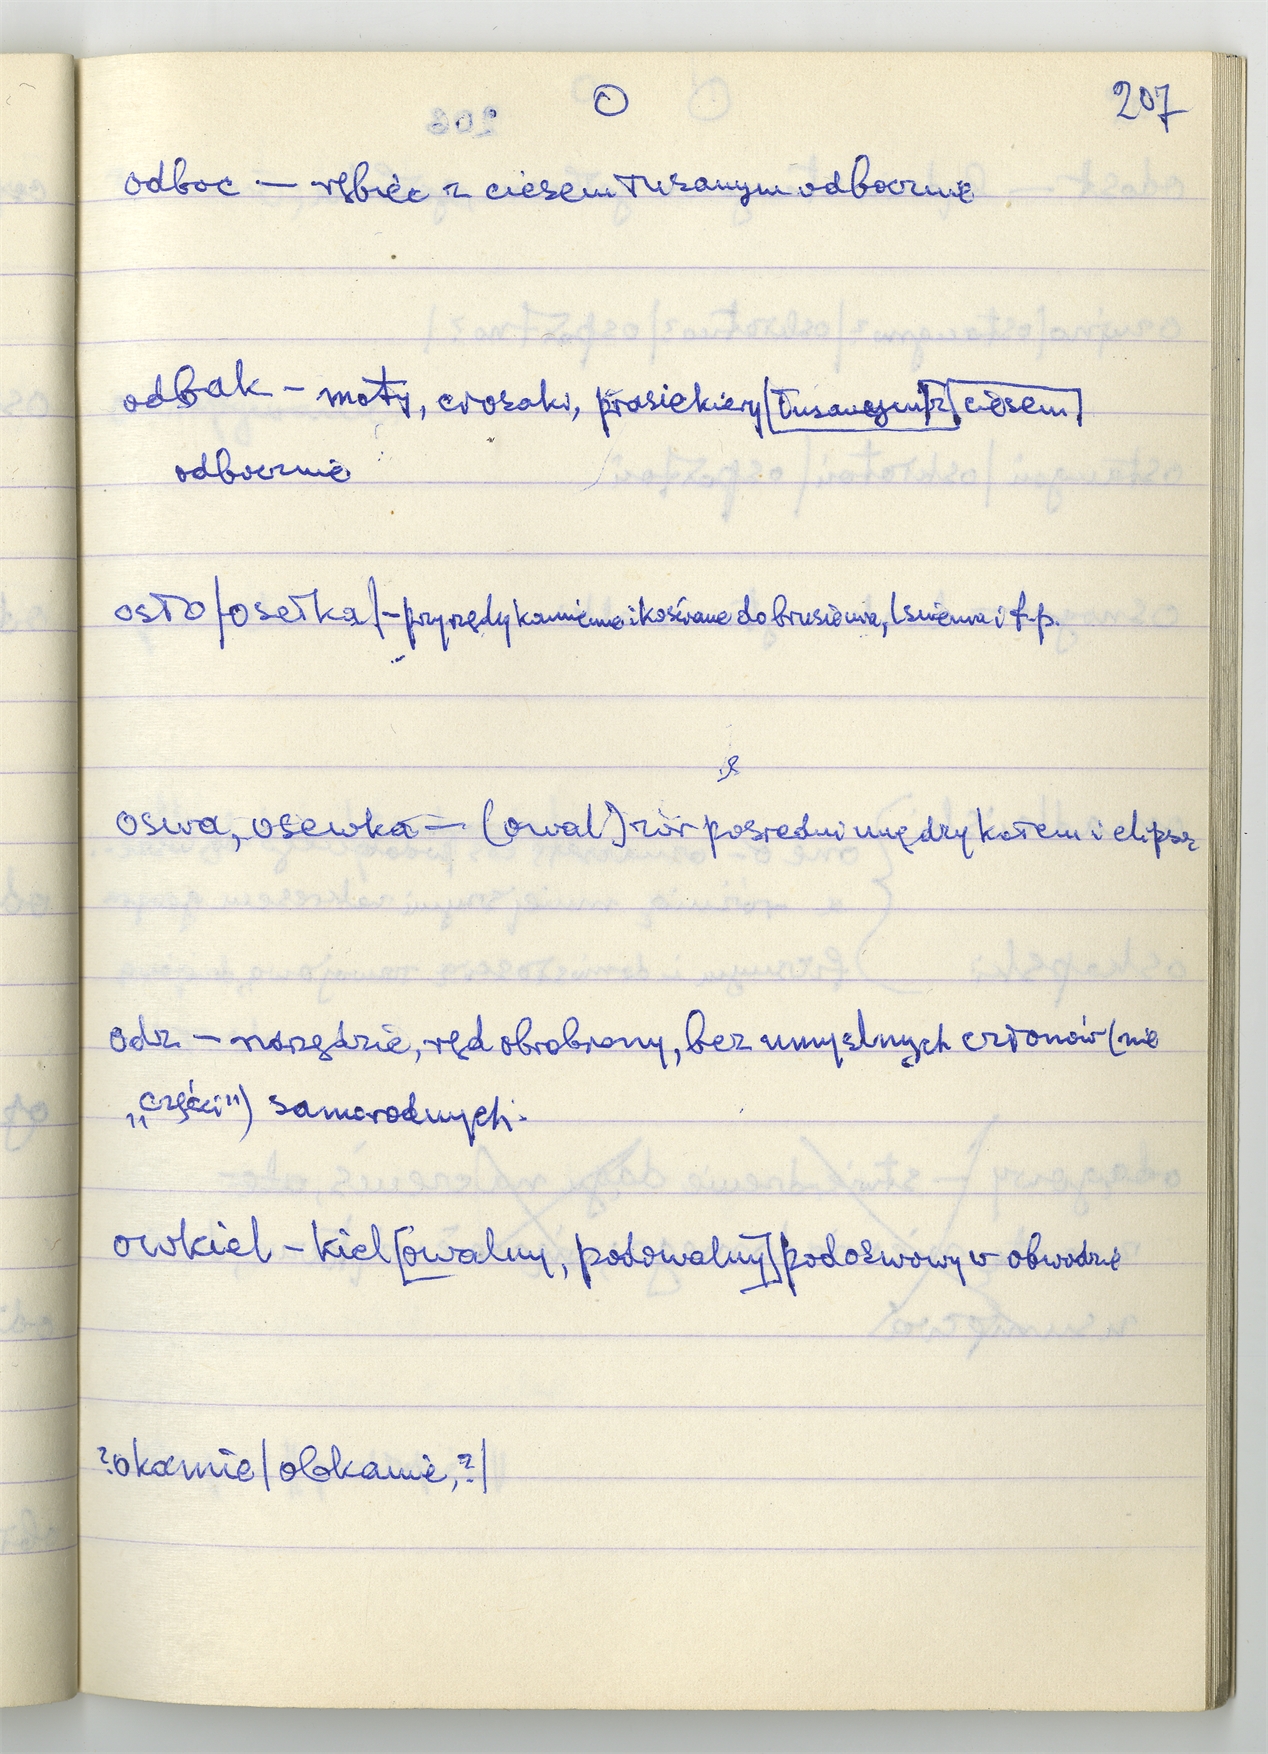 O 207
odboc — rębiec z ciesem łusanym odbocznie
odbak — moty, ciosaki, prasiekiery [łusanym] z [ciesem]
odbocznie
osło /osełka/ - przyrzędy kamienne i kościane do brusienia, lśnienia i t.p.
oswa, osewka — (owal) zór pośredni między kołem i elipsą
odz — narzędzie, rzęd obrobiony, bez umyślnych członów (nie
„części") samorodnych.
owkieł - kieł [owalny, podowalny] podoswowy w obwodzie
? okamie / obkamie, ? /